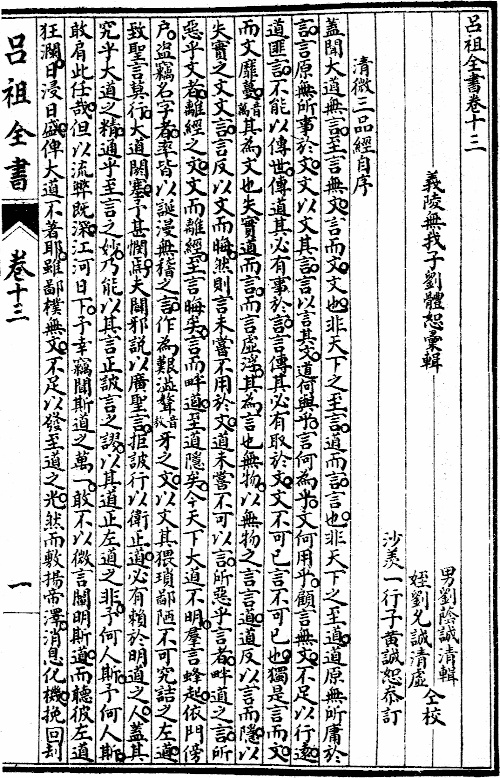 呂祖全書卷十三
義陵無我子劉體恕彙輯
男劉蔭誠清輯
姪劉允誠清虛仝校
沙羨一行子黃誠恕叅訂
清微三品經自序
蓋聞大道無言至言無文言而文文也非天下之至言道而言言也非天下之至道道原無所庸於
言言原無所事於文文以文其言言以言其文道何與乎言何為乎文何用乎顧言無文不足以行遠
道匪言不能以傳世傳道其必有事於言言傳其必有取於文文不可已言不可已也獨是言而文
而文靡蔓音萬其為文也失實道而言而言虛浮其為言也無物以無物之言言道道反以言而隱以
失實之文文言言反以文而晦然則言未嘗不用於文道未嘗不可以言所惡乎言者畔道之言所
惡乎文者離經之文文而離經至言晦矣言而畔道至道隱矣今天下大道不明羣言蜂起依門傍
戶盜竊名字者率皆以誕漫無稽之言作為艱澁聱音敖牙之文以文其猥瑣鄙陋不可究詰之左道
致聖言莫行大道闕塞予甚憫焉夫闢邪說以廣聖言拒詖行以衛正道必有賴於明道之人蓋其
究乎大道之精通乎至言之妙乃能以其言正詖言之謬以其道正左道之非予何人斯予何人斯
敢肩此任哉但以流弊既深江河日下予幸竊聞斯道之萬一敢不以微言闡明斯道而聽彼左道
狂瀾日浸日盛俾大道不著耶雖鄙樸無文不足以發至道之光然而敷揚帝澤消息化機挽回刦
呂祖全書
卷十三
一